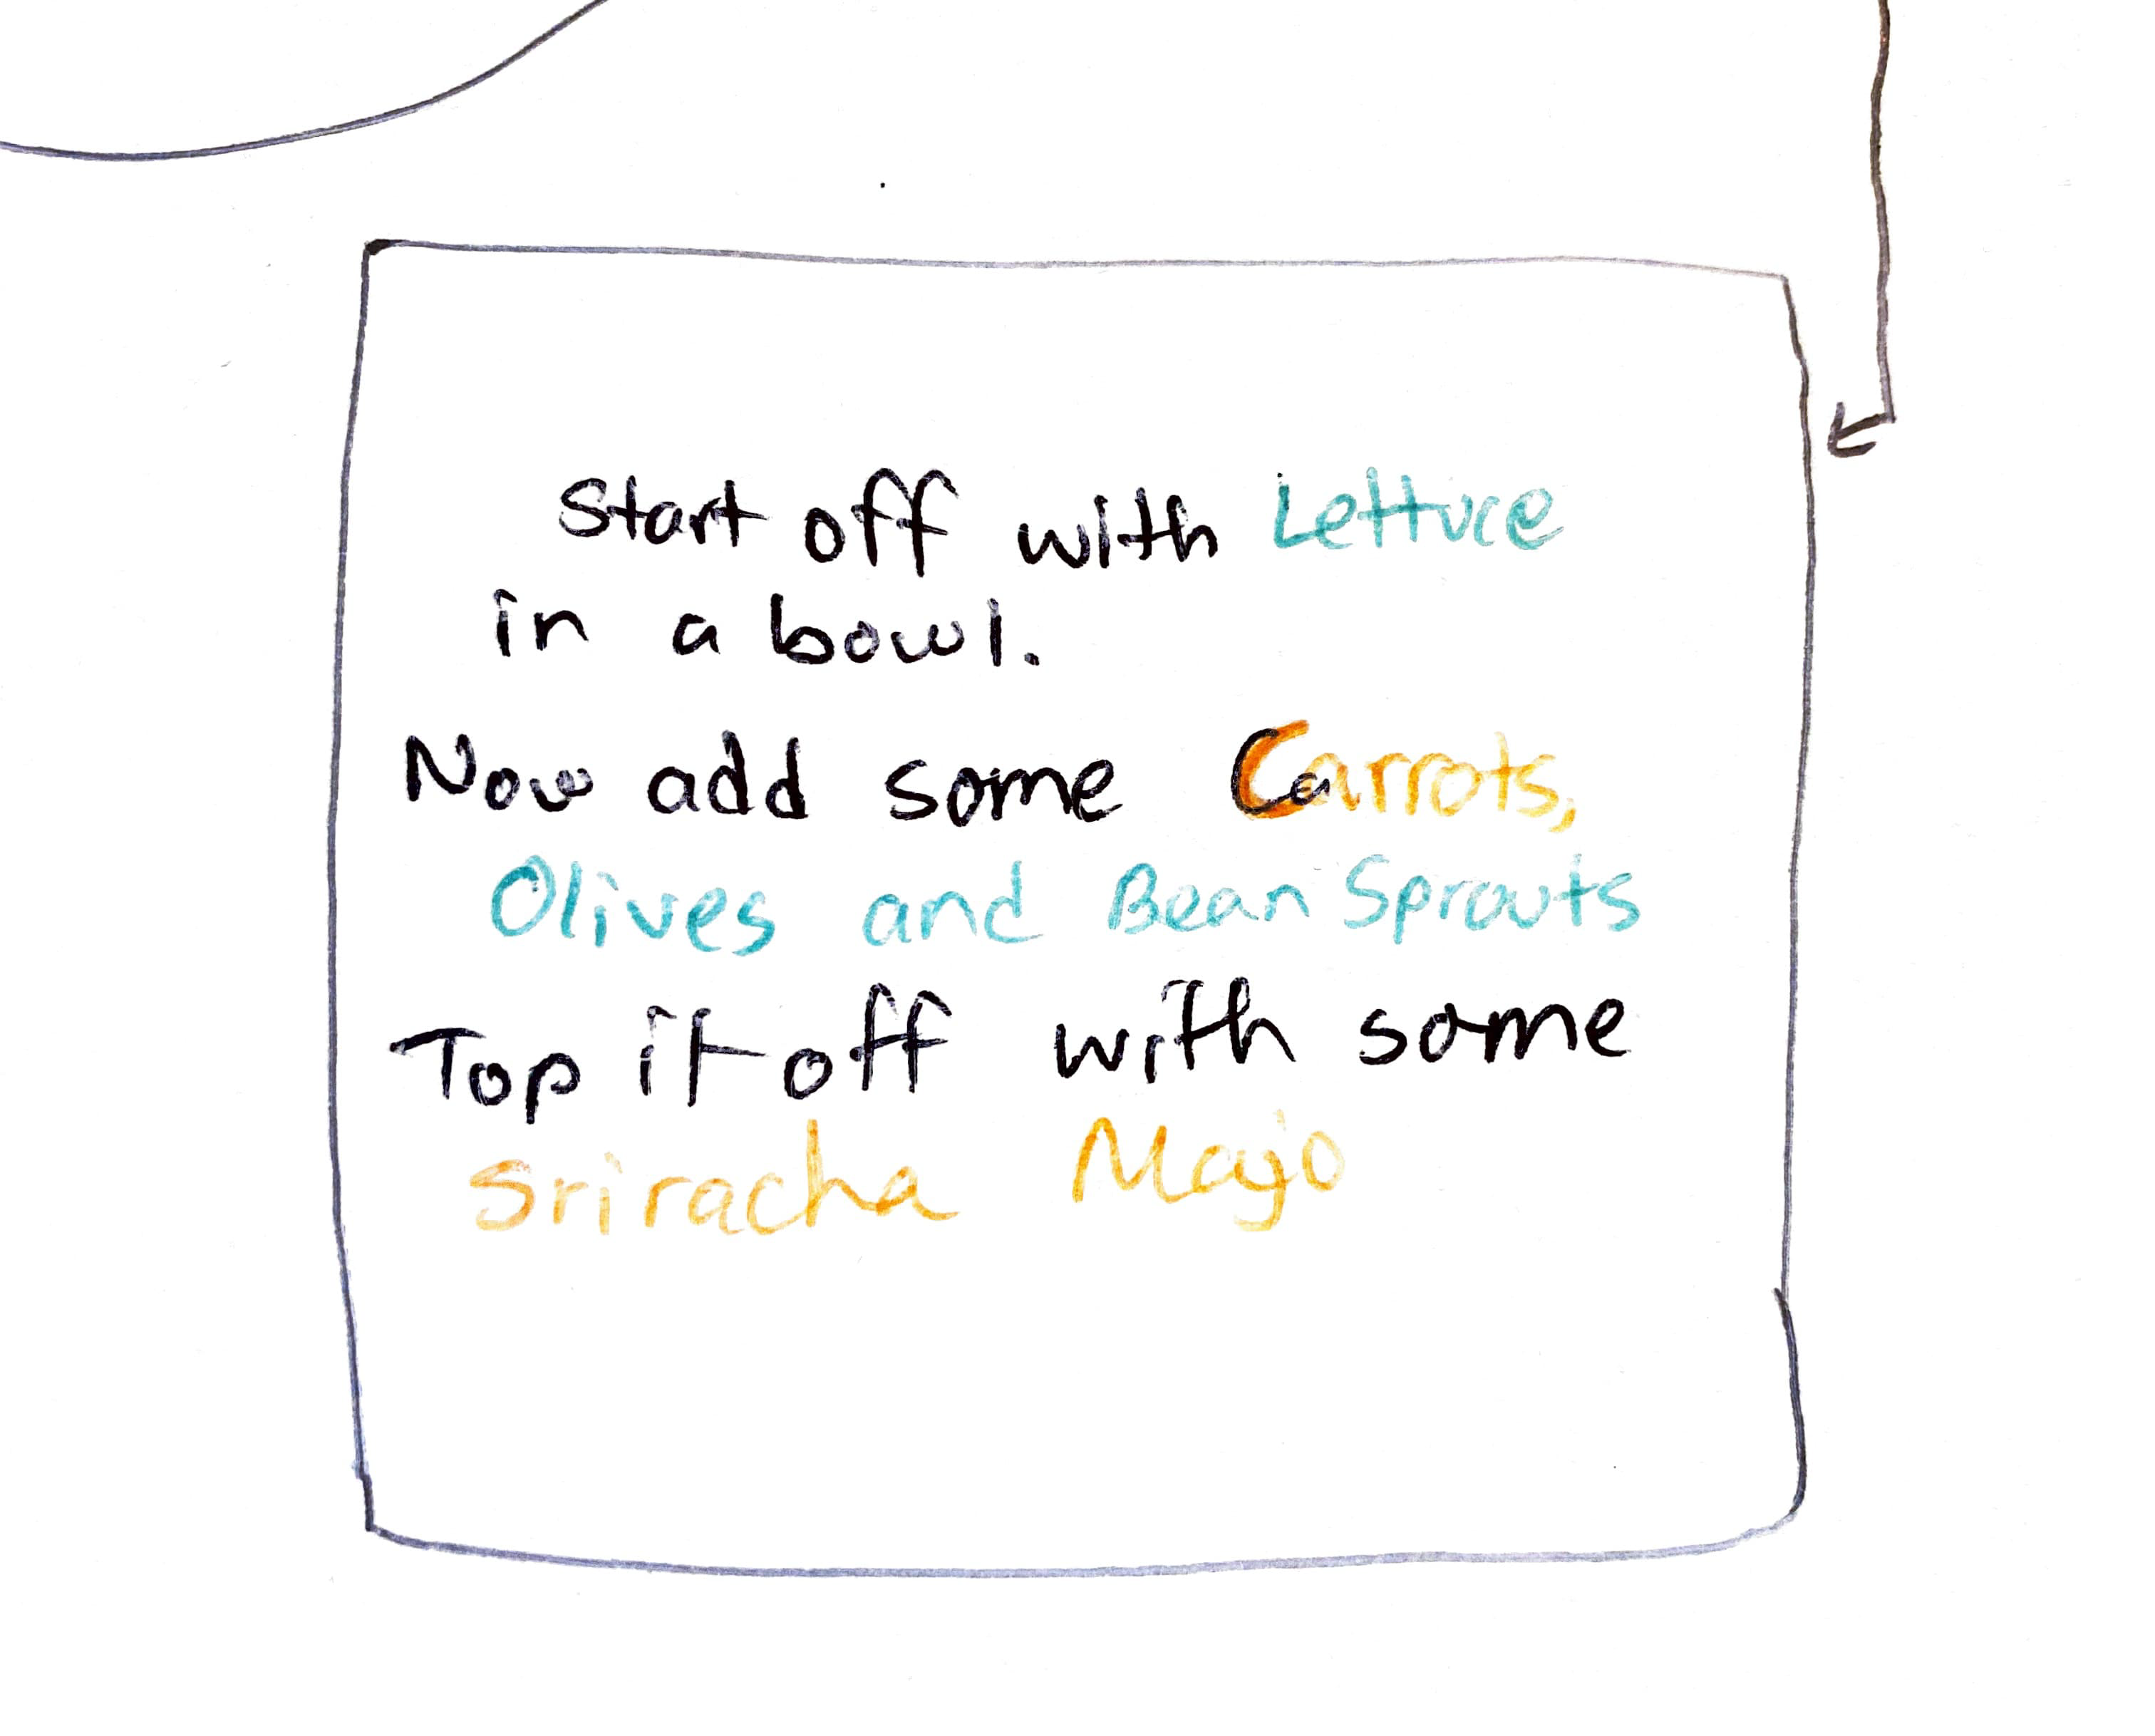 Start off with Lettuce
in a bowl.
Now add some Carrots,
Olives and Bean Sprouts
Top it off with some
Sriracha Mayo